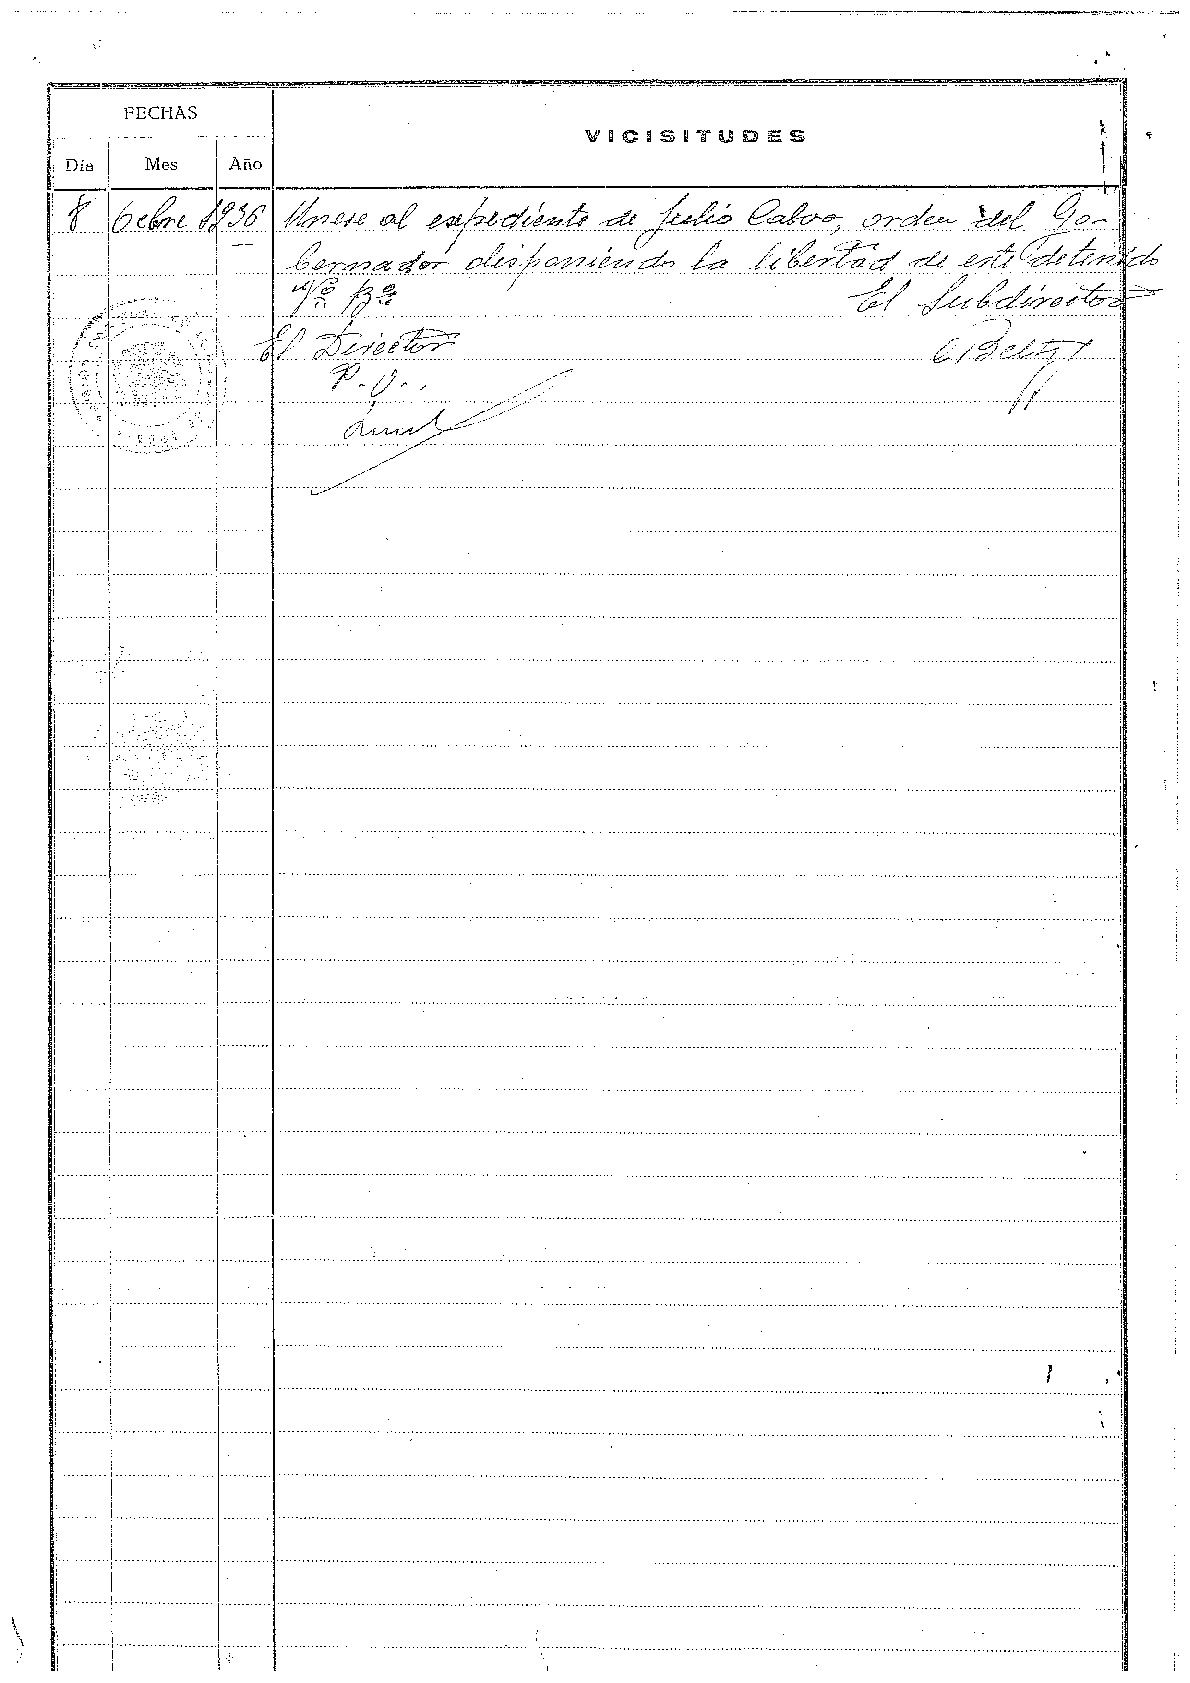 FECHAS
VICISITUDES
Día Mes Año
8 Octbre 1936 Unese al expediente de Julio Calvo, orden del Go-
bernador disponiendo la libertad de este detenido
Vº Bº El Subdirector
El Director
P.O.,